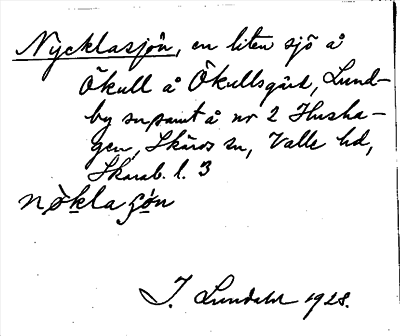 Nycklasjön, en liten sjö å
Ökull å Ökullsgärd, Lund-
by su samt å nr 2 Husha-
gen, Skärvs sn, Valle hd,
Skarab. l. 3
nökla ʃön
I. Lundahl 1928.